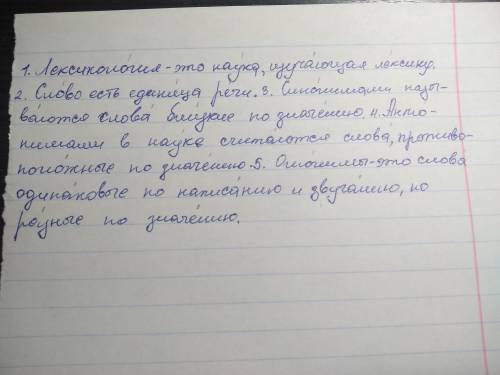 1. Лексиколо́гия - это нау́ка, изуча́ющая ле́ксику.
2. Сло́во есть едини́ца ре́чи. 3. Сино́нимами назы-
ва́ются слова́ бли́зкие по значе́нию. 4. Анто-
нимами в нау́ке счита́ются слова, противо-
поло́жные по значе́нию. 5. Омо́нимы - э́то слова́
одина́ковые по написа́нию и звуча́нию, но
ра́зные по значе́нию.